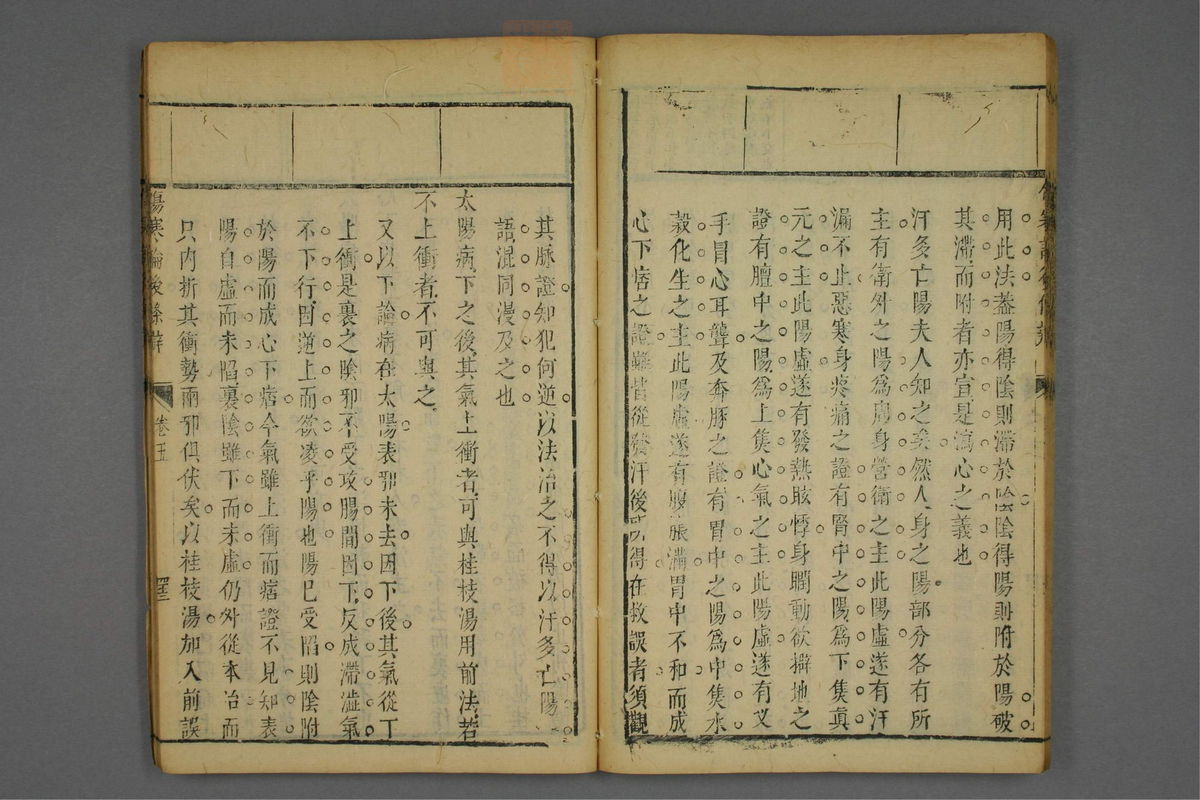 用此法蓋陽得陰則滯於陰陰得陽則附於陽破
其滯而附者亦宣是瀉心之義也
汗多亡陽夫人知之矣然人身之陽部分各有所
主有衛外之陽為周身營衛之主此陽虛遂有汗
漏不止惡寒身疼痛之證有腎中之陽為下焦真
元之主此陽虛遂有發熱眩悸身瞤動欲擗地之
證有膻中之陽為上焦心氣之主此陽虛遂有叉
手冒心耳聾及奔豚之證有胃中之陽為中焦水
穀化生之主此陽虛遂有腹脹滿胃中不和而成
心下痞之證雖皆從發汗後所得在救誤者須觀
其脉證知犯何逆以法治之不得以汗多亡陽一
語混同漫及之也
太陽病下之後其氣上衝者可與桂枝湯用前法若
不上衝者不可與之
又以下論病在太陽表邪未去因下後其氣從下
上衝是裏之陰邪不受攻腸間因下反成滯澁氣
不下行因逆上而欲凌乎陽也陽已受陷則陰附
於陽而成心下痞今氣雖上衝而痞證不見知表
陽自虛而未陷裏陰雖下而未虛仍外從本治而
只內折其衝勢兩邪俱伏矣以桂枝湯加入前誤
傷寒論後條辯
卷五